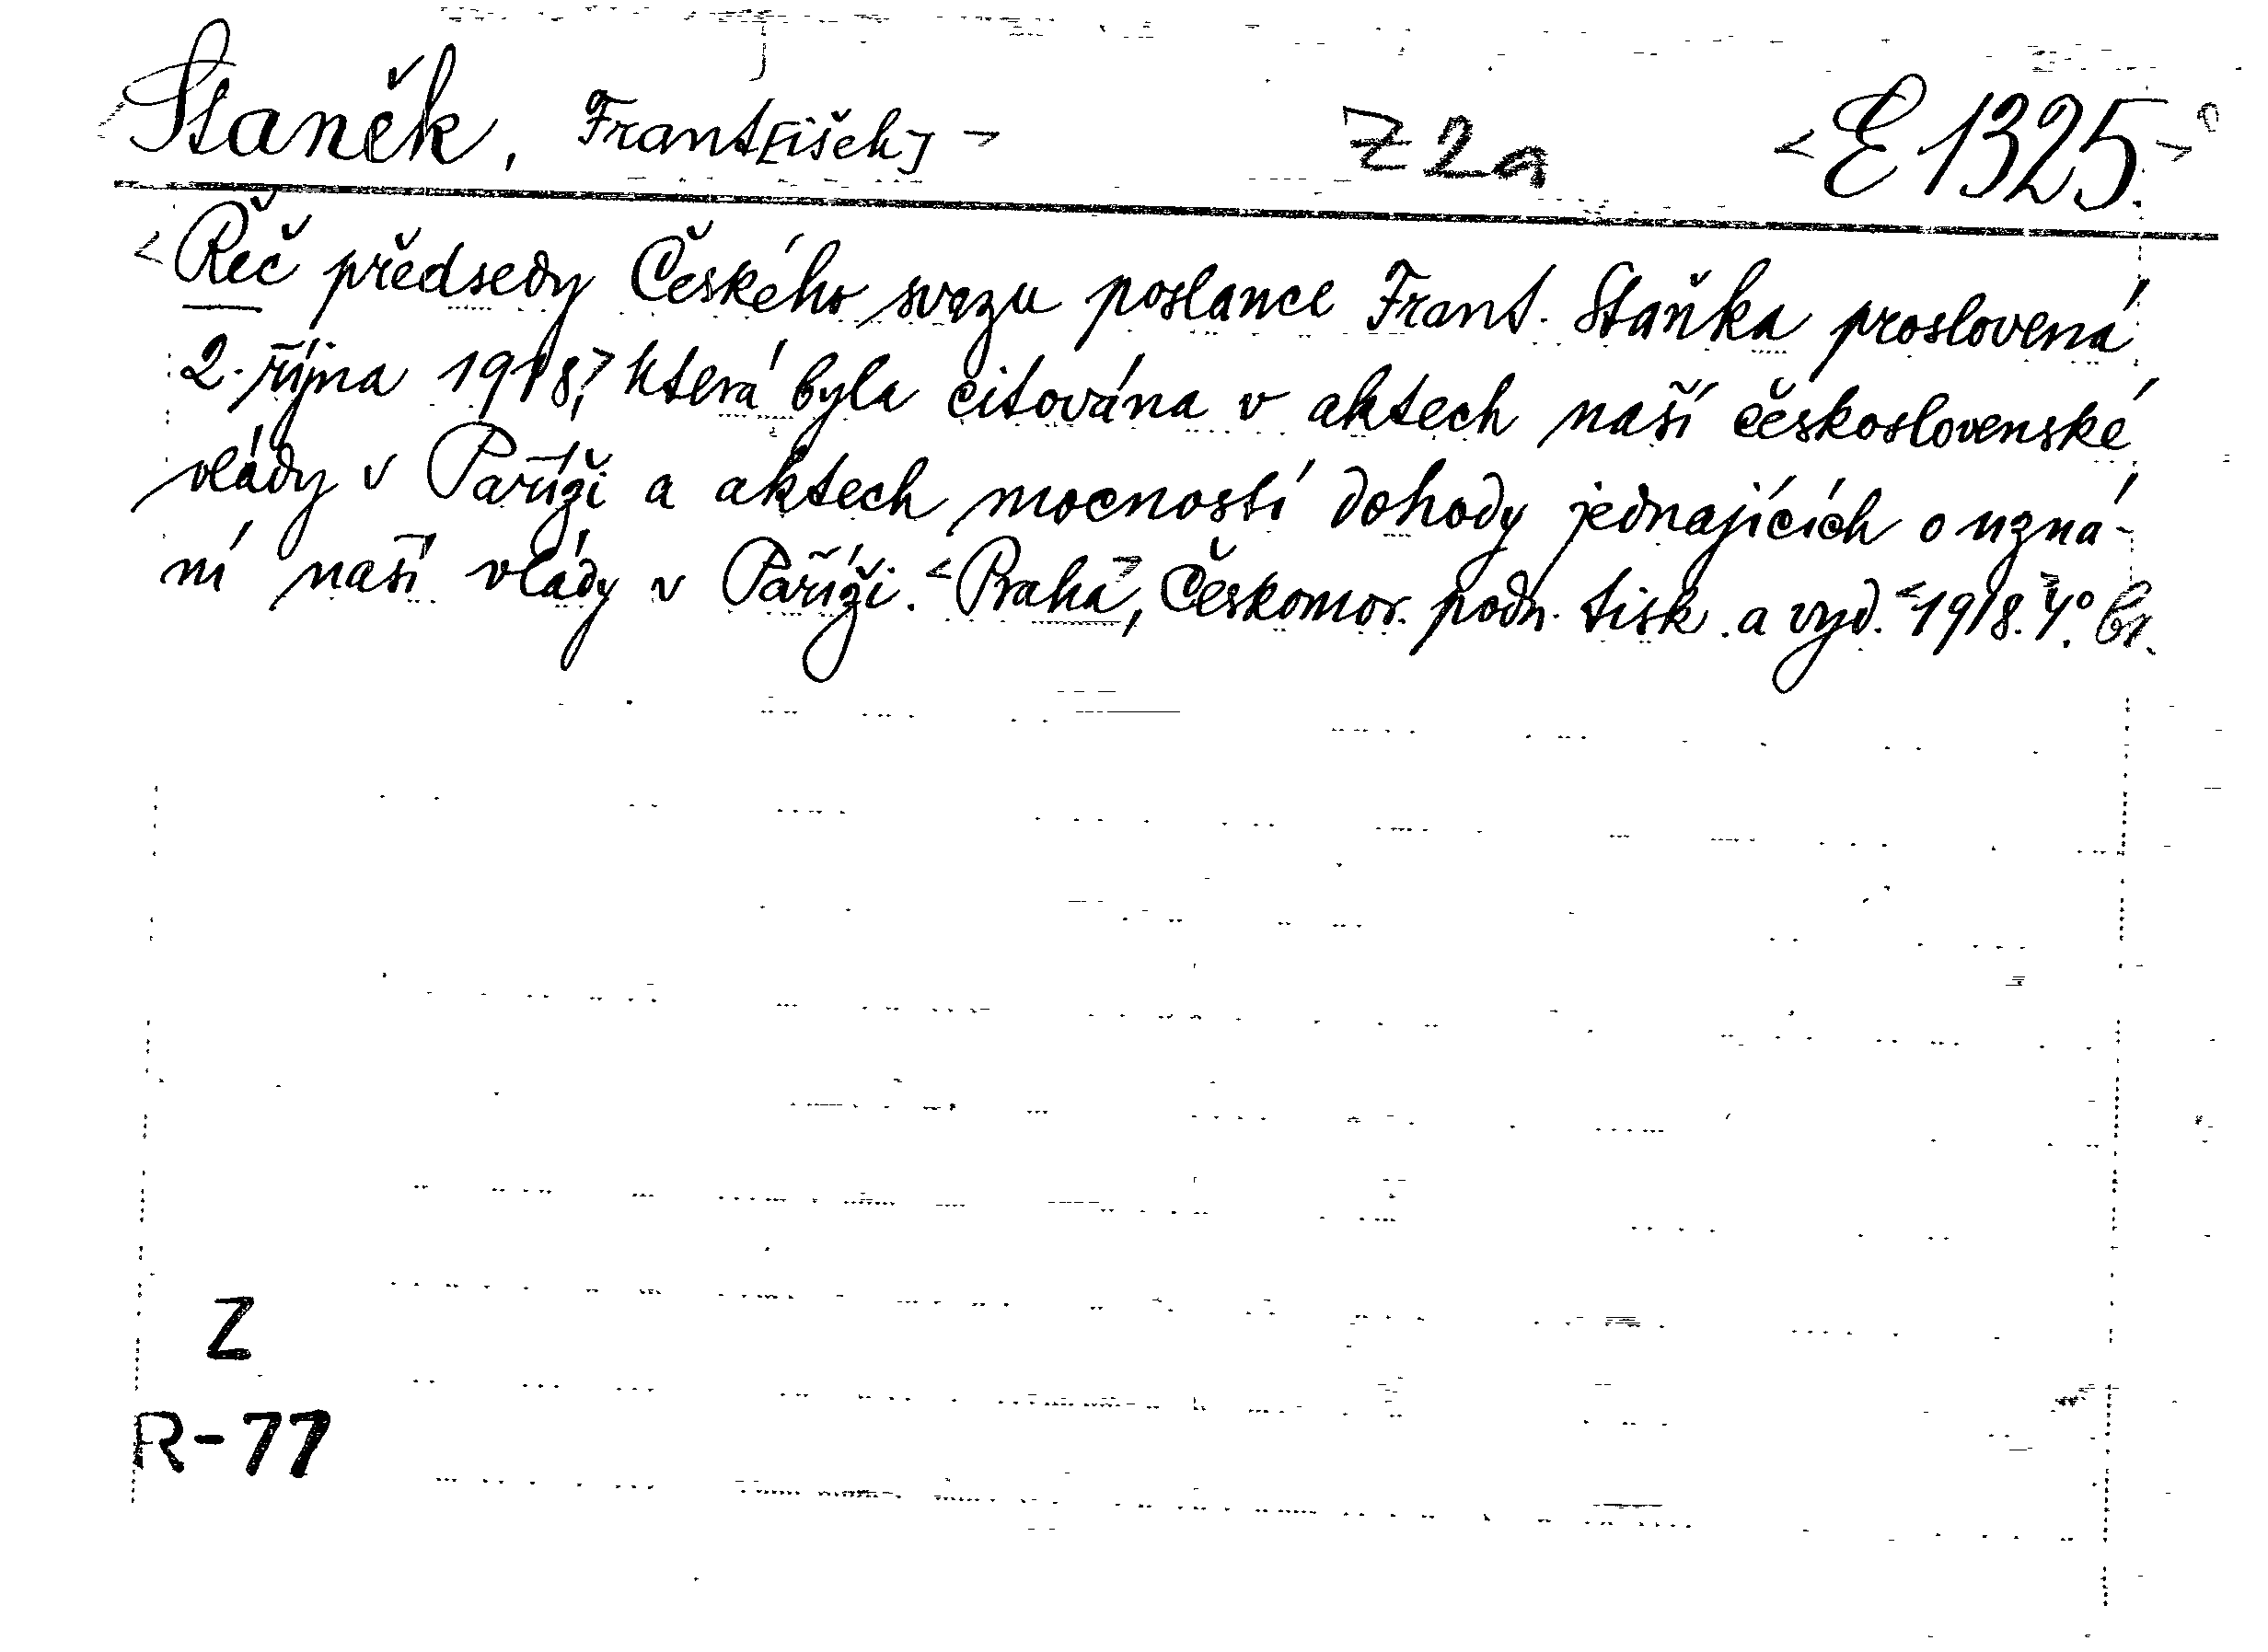 Staněk, Frant[išek] > Z 2a < E 1325. >
< Řeč předsedy Českého svazu poslance Frant. Staňka proslovená
2. října 1918, > která byla citována v aktech naší československé
vlády v Paříži a aktech mocností dohody jednajících o uzná-
ní naší vlády v Paříži. < Praha >, Českomor. podn. tisk. a vyd. < 1918. > 4°. br.
Z
R-77